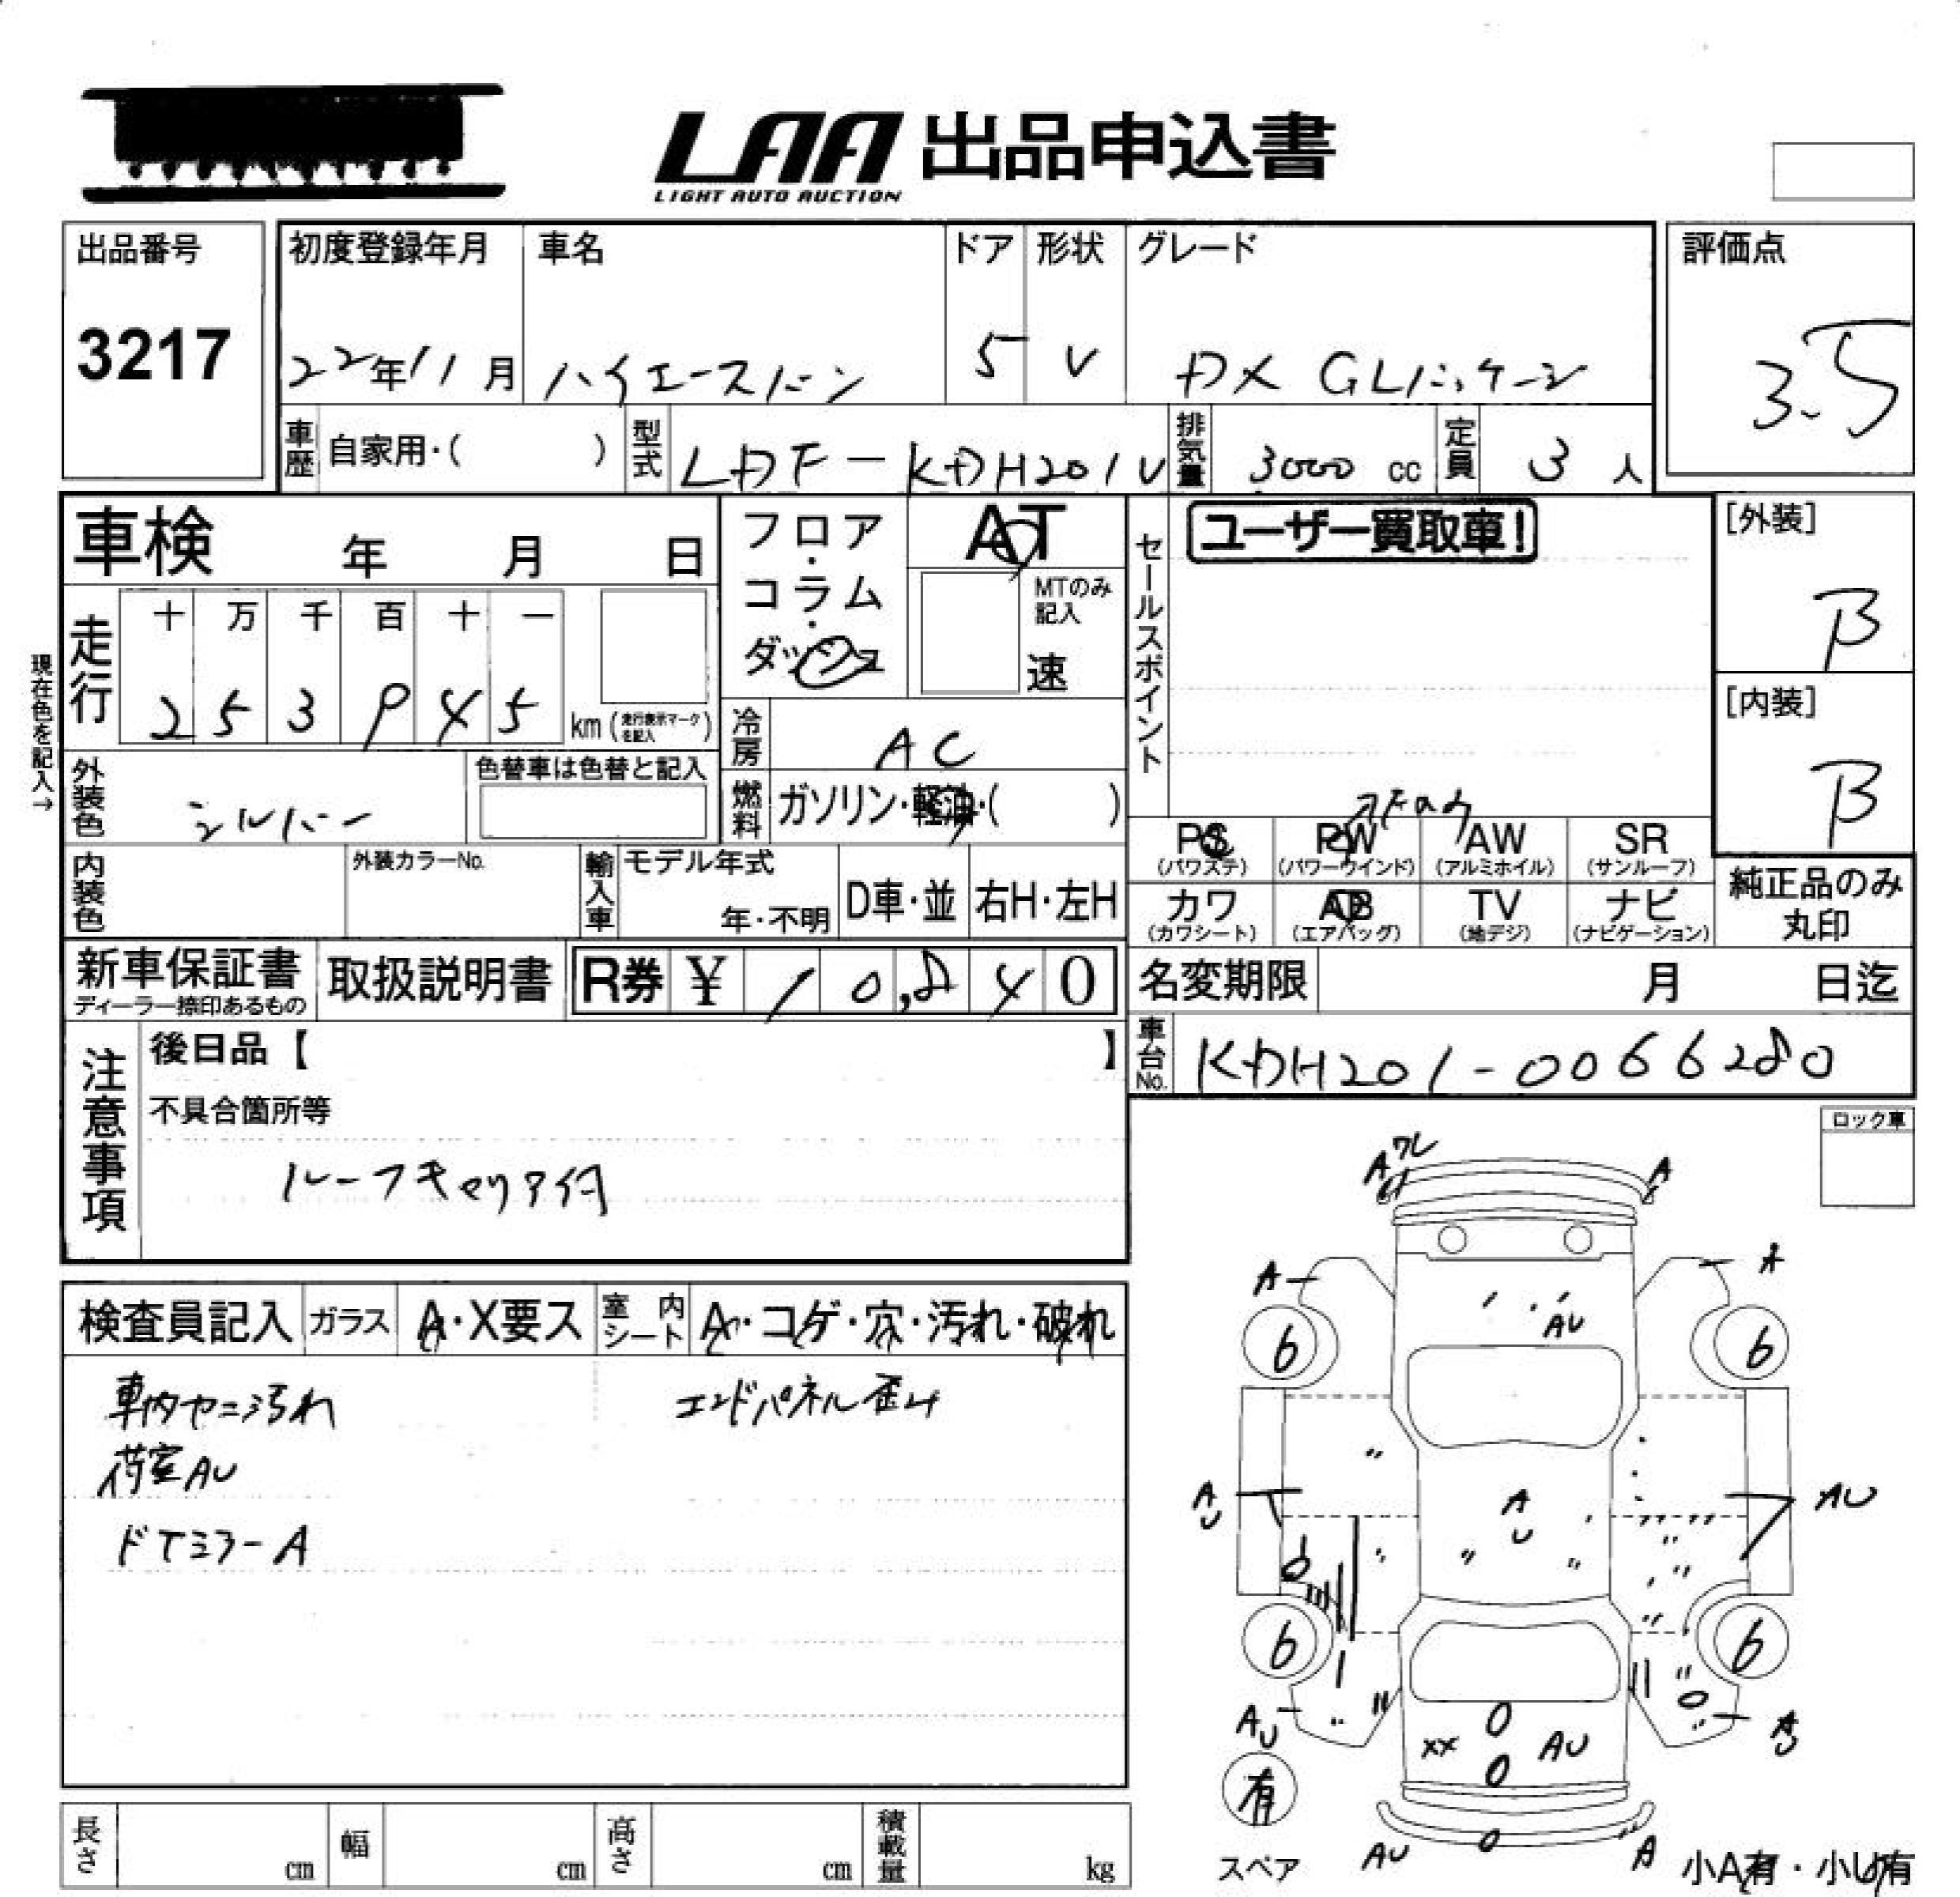 LAA 出品申込書
LIGHT AUTO AUCTION
出品番号
3217
初度登録年月
22年11月
車名
ハイエースバン
ドア
5
形状
V
グレード
DX GLパッケージ
評価点
3.5
車歴 自家用・( )
型式 LDF-KDH201V
排気量 3000 cc
定員 3 人
車検 年 月 日
フロア・コラム・ダッシュ
AT
MTのみ記入
速
セールスポイント
ユーザー買取車!
[外装]
B
[内装]
B
現在色を記入→
走行
十 万 千 百 十 一
2 5 3 9 4 5 km (走行表示マークを記入)
冷房 AC
外装色 シルバー
色替車は色替と記入
燃料 ガソリン・軽油・( )
PS (パワステ)
PW (パワーウインド)
AW (アルミホイル)
SR (サンルーフ)
内装色
外装カラーNo.
輸入車
モデル年式
年・不明
D車・並
右H・左H
カワ (カワシート)
AB (エアバッグ)
TV (地デジ)
ナビ (ナビゲーション)
純正品のみ丸印
新車保証書
ディーラー捺印あるもの
取扱説明書
R券 ¥ 10,840
名変期限 月 日迄
車台No. KDH201-0066280
注意事項
後日品【 】
不具合箇所等
ルーフキャリア付
ロック車
検査員記入
ガラス A・X要ス
室内シート A・コゲ・穴・汚れ・破れ
車内ヤニ汚れ エンドパネル歪み
荷室AU
ドアミラーA
ワレ
A A
A A
AU
6 6
A U
A U
AU
6 6
AU
A U
XX AU
有
スペア
AU A
小A有・小U有
長さ cm
幅 cm
高さ cm
積載量 kg